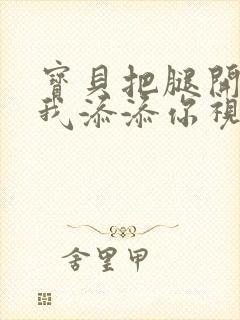 寶貝把腿開
我添添你視
舍里甲